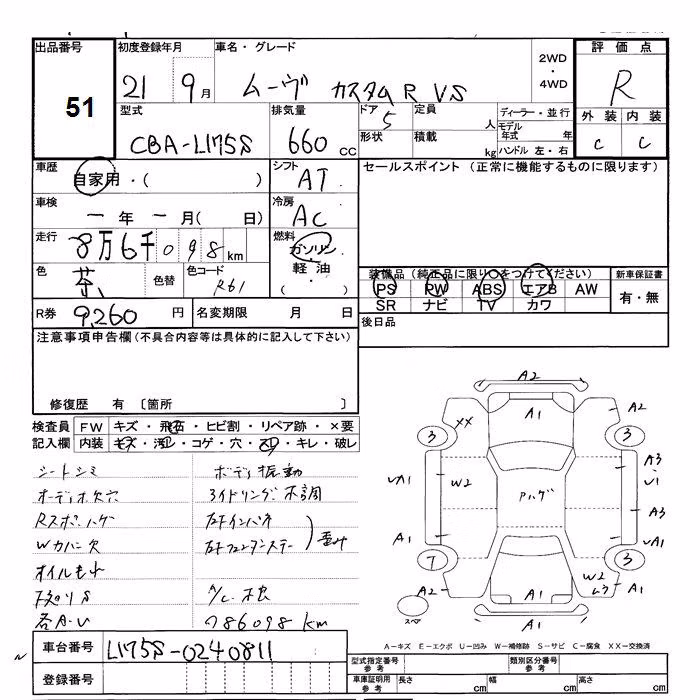 出品番号 51
初度登録年月 21 9月
車名・グレード ムーヴ カスタムR VS
2WD・4WD
評価点 R
型式 CBA-L175S
排気量 660 CC
ドア 5
形状
定員 人
積載 kg
ディーラー・並行
モデル年式 年
ハンドル 左・右
外装 内装
C C
車歴 自家用・( )
シフト AT
セールスポイント (正常に機能するものに限ります)
車検 一年一月( 日)
冷房 AC
走行 8万6千098km
燃料 ガソリン・軽油・( )
色 茶
色替
色コード R61
装備品 (純正品に限り○をつけてください)
新車保証書
PS PW ABS エアB AW
有・無
SR ナビ TV カワ
R券 9,260 円
名変期限 月 日
後日品
注意事項申告欄 (不具合内容等は具体的に記入して下さい)
修復歴 有 〔箇所 〕
検査員記入欄
FW キズ・飛石・ヒビ割・リペア跡・×要
内装 キズ・汚・コゲ・穴・スリ・キレ・破レ
シートシミ
オーディオ欠穴
Rスポ.ハゲ
Wカバー欠
オイルもれ
各A・U
ボディ振動
スライドリンク不調
左右インパネ
歪み
786098 km
車台番号 L175S-0240811
登録番号
A2
A1
XX
A2
3
3
UA1
W2
Aハゲ
A3
U1
A3
A1
UA1
7
3
A2
A1
W2
A1
A1
スペア
A1
A-キズ E-エクボ U-凹み W-補修跡 S-サビ C-腐食 XX-交換済
型式指定番号 参考
類別区分番号 参考
車庫証明用 参考
長さ cm
幅 cm
高さ cm